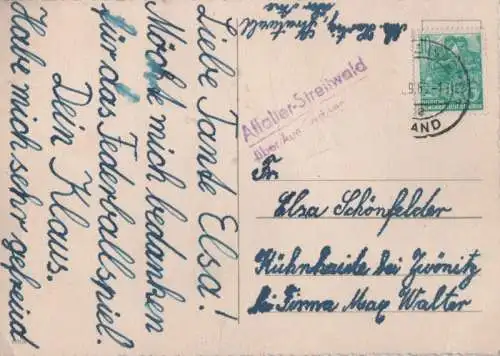 Liebe Tante Elsa!
Möchte mich bedanken
für das Federballspiel.
Dein Klaus.
Habe mich sehr gefreid
Affalter-Streitwald
über Aue
Fr.
Elsa Schönfelder
Kühnhaide bei Zwönitz
bei Firma Max Walter
LAND